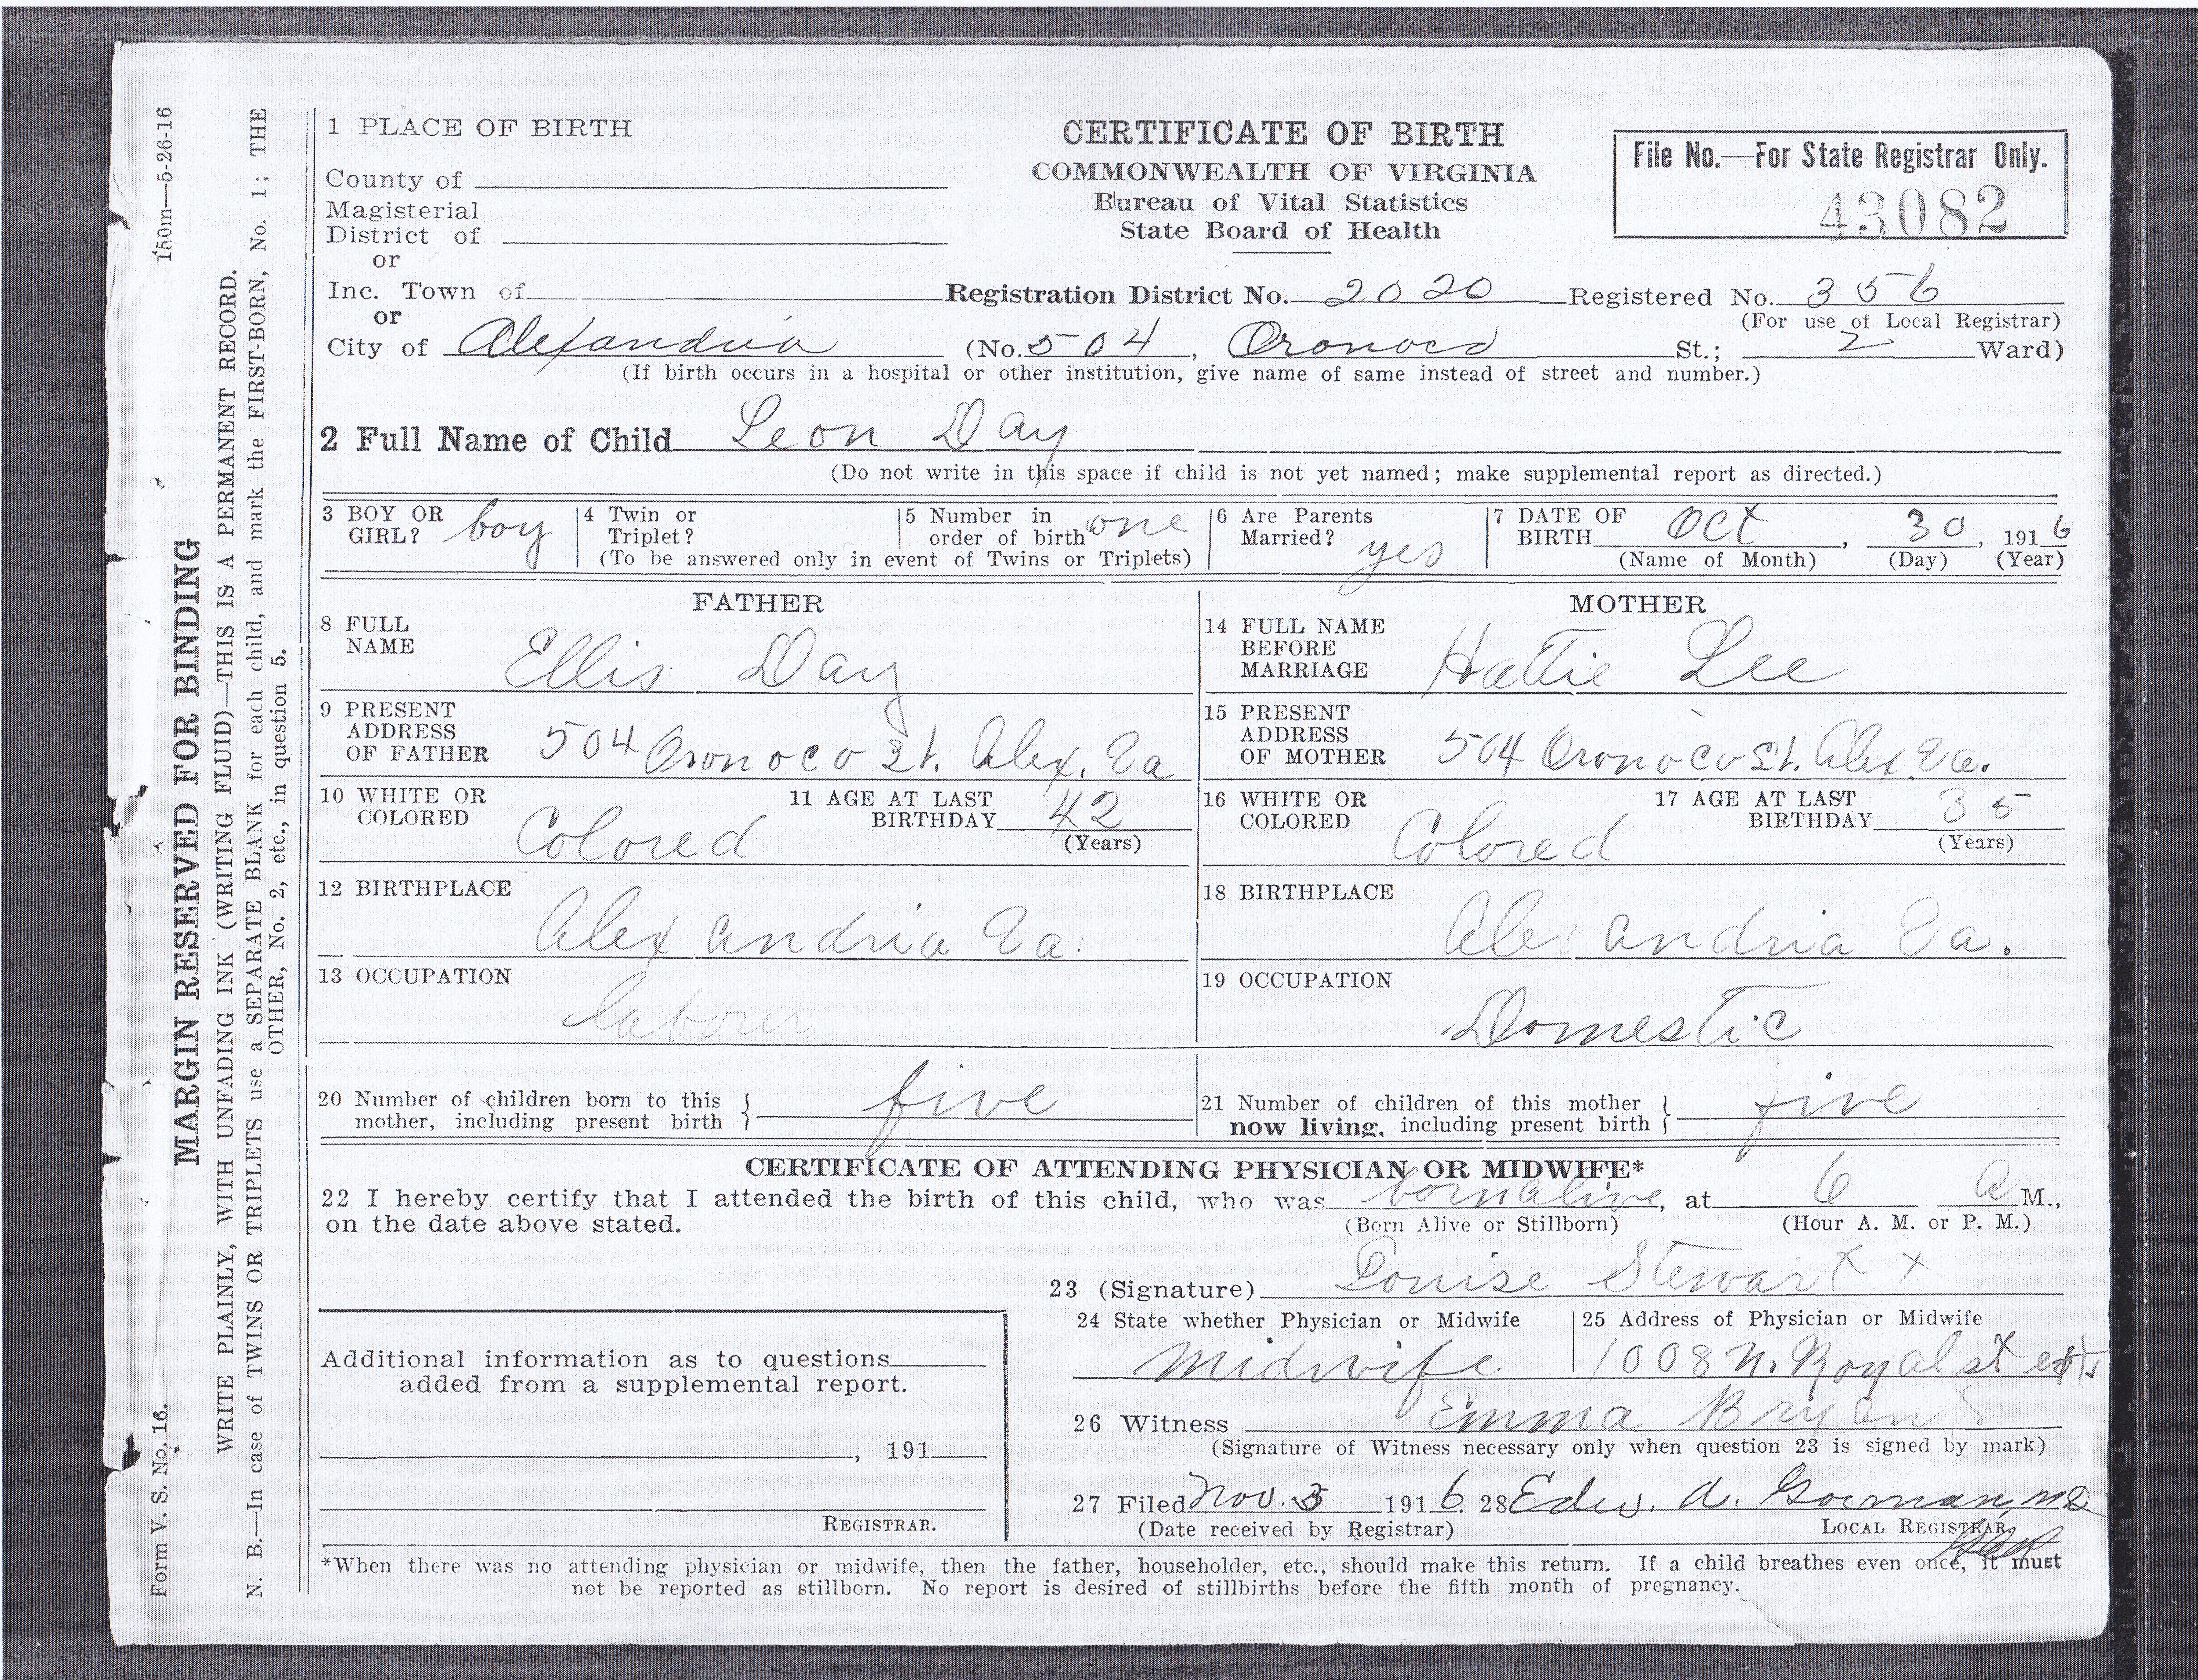 150m—5-26-16
Form V. S. No. 16.
MARGIN RESERVED FOR BINDING
WRITE PLAINLY, WITH UNFADING INK (WRITING FLUID)—THIS IS A PERMANENT RECORD.
N. B.—In case of TWINS OR TRIPLETS use a SEPARATE BLANK for each child, and mark the FIRST-BORN, No. 1; THE
OTHER, No. 2, etc., in question 5.
1 PLACE OF BIRTH
County of
Magisterial
District of
or
Inc. Town of
or
City of Alexandria (No. 504, Oronoco St.; 2 Ward)
(If birth occurs in a hospital or other institution, give name of same instead of street and number.)
CERTIFICATE OF BIRTH
COMMONWEALTH OF VIRGINIA
Bureau of Vital Statistics
State Board of Health
File No.—For State Registrar Only.
43082
Registration District No. 2020 Registered No. 356
(For use of Local Registrar)
2 Full Name of Child Leon Day
(Do not write in this space if child is not yet named; make supplemental report as directed.)
3 BOY OR GIRL? boy
4 Twin or Triplet?
5 Number in order of birth one
(To be answered only in event of Twins or Triplets)
6 Are Parents Married? yes
7 DATE OF BIRTH Oct, 30, 1916
(Name of Month) (Day) (Year)
FATHER
8 FULL NAME Ellis Day
9 PRESENT ADDRESS OF FATHER 504 Oronoco St. Alex. Va
10 WHITE OR COLORED Colored
11 AGE AT LAST BIRTHDAY 42
(Years)
12 BIRTHPLACE Alexandria Va.
13 OCCUPATION laborer
MOTHER
14 FULL NAME BEFORE MARRIAGE Hattie Lee
15 PRESENT ADDRESS OF MOTHER 504 Oronoco St. Alex Va.
16 WHITE OR COLORED Colored
17 AGE AT LAST BIRTHDAY 35
(Years)
18 BIRTHPLACE Alexandria Va.
19 OCCUPATION Domestic
20 Number of children born to this mother, including present birth } five
21 Number of children of this mother now living, including present birth } five
CERTIFICATE OF ATTENDING PHYSICIAN OR MIDWIFE*
22 I hereby certify that I attended the birth of this child, who was born alive, at 6 a M.,
on the date above stated. (Born Alive or Stillborn) (Hour A. M. or P. M.)
23 (Signature) Louise Stewart x
24 State whether Physician or Midwife
Midwife
25 Address of Physician or Midwife
1008 N. Royal st
26 Witness Emma Bryant
(Signature of Witness necessary only when question 23 is signed by mark)
27 Filed Nov. 3 1916 28 Edw. A. Gorman, MD
(Date received by Registrar) LOCAL REGISTRAR.
Additional information as to questions
added from a supplemental report.
, 191
REGISTRAR.
*When there was no attending physician or midwife, then the father, householder, etc., should make this return. If a child breathes even once, it must
not be reported as stillborn. No report is desired of stillbirths before the fifth month of pregnancy.